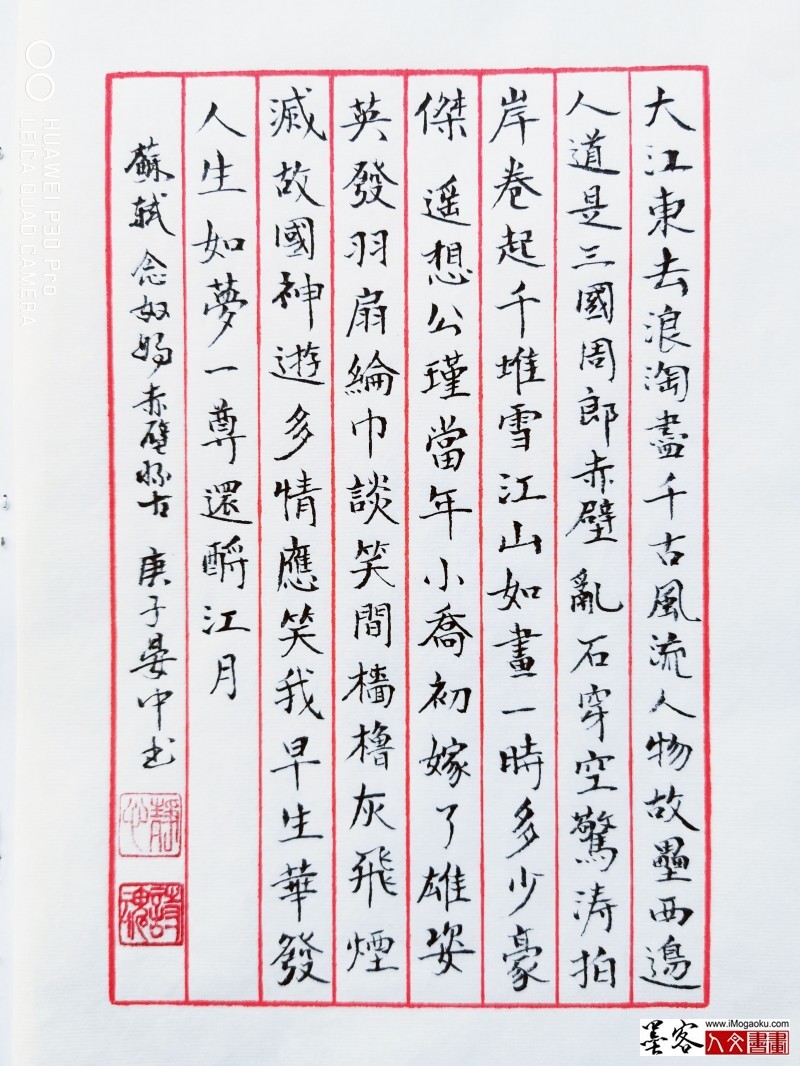 大江東去浪淘盡千古風流人物故壘西邊
人道是三國周郎赤壁亂石穿空驚涛拍
岸卷起千堆雪江山如畫一時多少豪
傑遥想公瑾當年小喬初嫁了雄姿
英發羽扇綸巾談笑間檣櫓灰飛煙
滅故國神遊多情應笑我早生華發
人生如夢一尊還酹江月
蘇軾念奴嬌赤壁懷古 庚子晏中书
靜心
詩魂
HUAWEI P30 Pro
LEICA QUAD CAMERA
墨客
www.iMogaoku.com
人文書畫